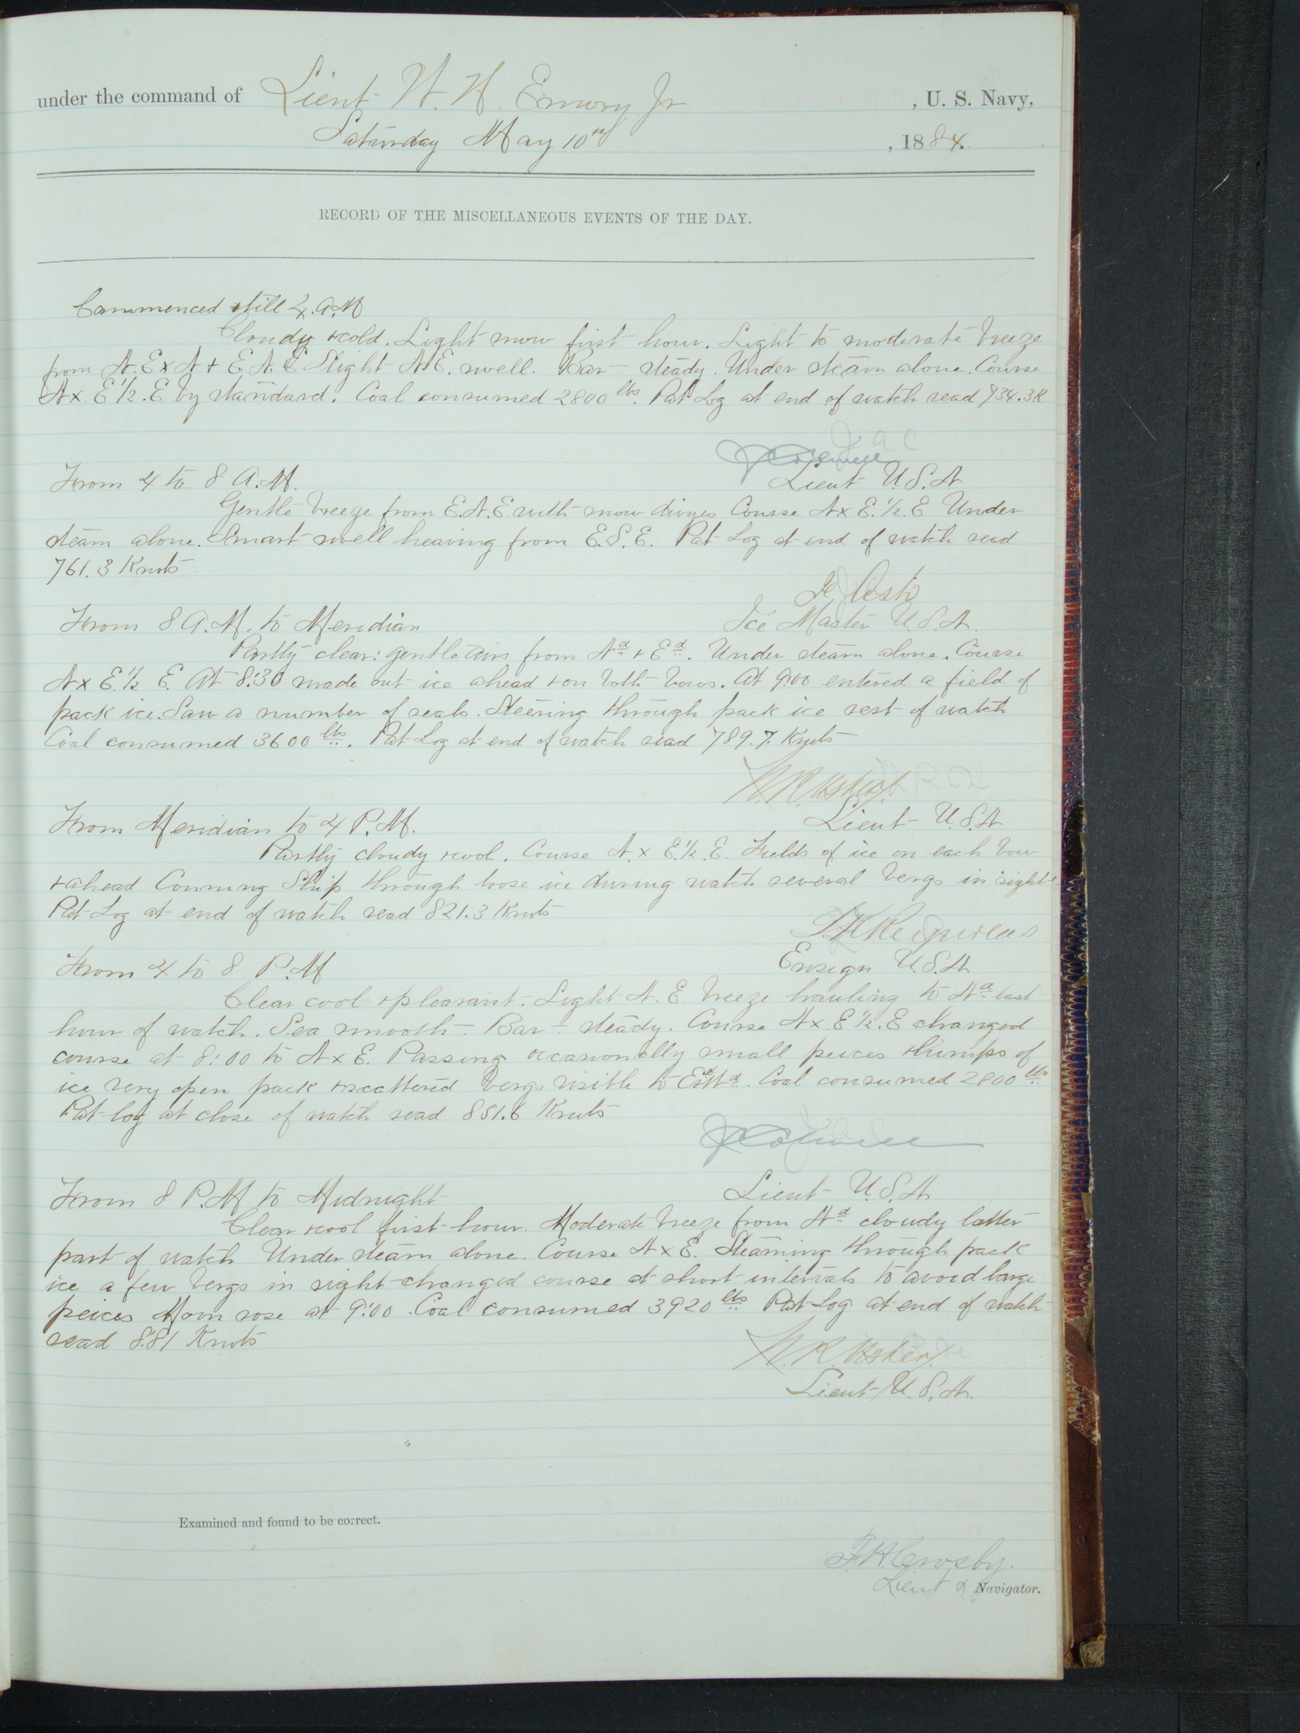 under the command of Lieut. W. H. Emory Jr , U. S. Navy,
Saturday May 10th , 1884.
RECORD OF THE MISCELLANEOUS EVENTS OF THE DAY.
Commenced + till 4. A.M
Cloudy + cold. Light snow first hour. Light to moderate breeze
from N. E x N + E. N. E Slight N.E. swell. Bar- steady. Under steam alone. Course
N x E ½. E by standard. Coal consumed 2800 lbs. Pat Log at end of watch read 734.3 K
Lieut U.S.N
From 4 to 8 A.M.
Gentle breeze from E.N.E with snow dinges Course N x E. ½. E Under
steam alone. Smart swell heaving from E.S.E. Pat Log at end of watch read
761.3 Knots
Ash
Ice Master U.S.N.
From 8 A.M. to Meridian
Partly clear: gentle airs from Nd + Ed. Under steam alone. Course
N x E ½ E. At 8:30 made out ice ahead + on both bows. At 9:00 entered a field of
pack ice. Saw a number of seals. Steering through pack ice rest of watch
Coal consumed 3600 lbs. Pat Log at end of watch read 789.7. Knots
N. R. Usher
Lieut U.S.N
From Meridian to 4 P.M.
Partly cloudy + cool. Course N. x E. ½. E. Fields of ice on each bow
+ ahead Conning Ship through loose ice during watch several bergs in sight
Pat Log at end of watch read 821.3 Knots
Ensign U.S.N.
From 4 to 8 P.M
Clear cool + pleasant. Light N. E breeze hauling to Nd last
hour of watch. Sea smooth. Bar- steady. Course N x. E ½. E changed
course at 8:00 to N x E. Passing occasionally small peices + lumps of
ice very open pack + scattered bergs visible to Estd. Coal consumed 2800 lbs
Pat log at close of watch read 851.6 Knots
Lieut U.S.N
From 8 P.M to Midnight
Clear + cool first hour. Moderate breeze from Nd cloudy latter
part of watch Under steam alone. Course N x E. Steaming through pack
ice a few bergs in sight changed course at short intervals to avoid large
peices Moon rose at 9:00. Coal consumed 3920 lbs Pat Log at end of watch
read 881 Knots
N. R. Usher.
Lieut U.S.N.
Examined and found to be correct.
F. H. Crosby.
Lieut & Navigator.